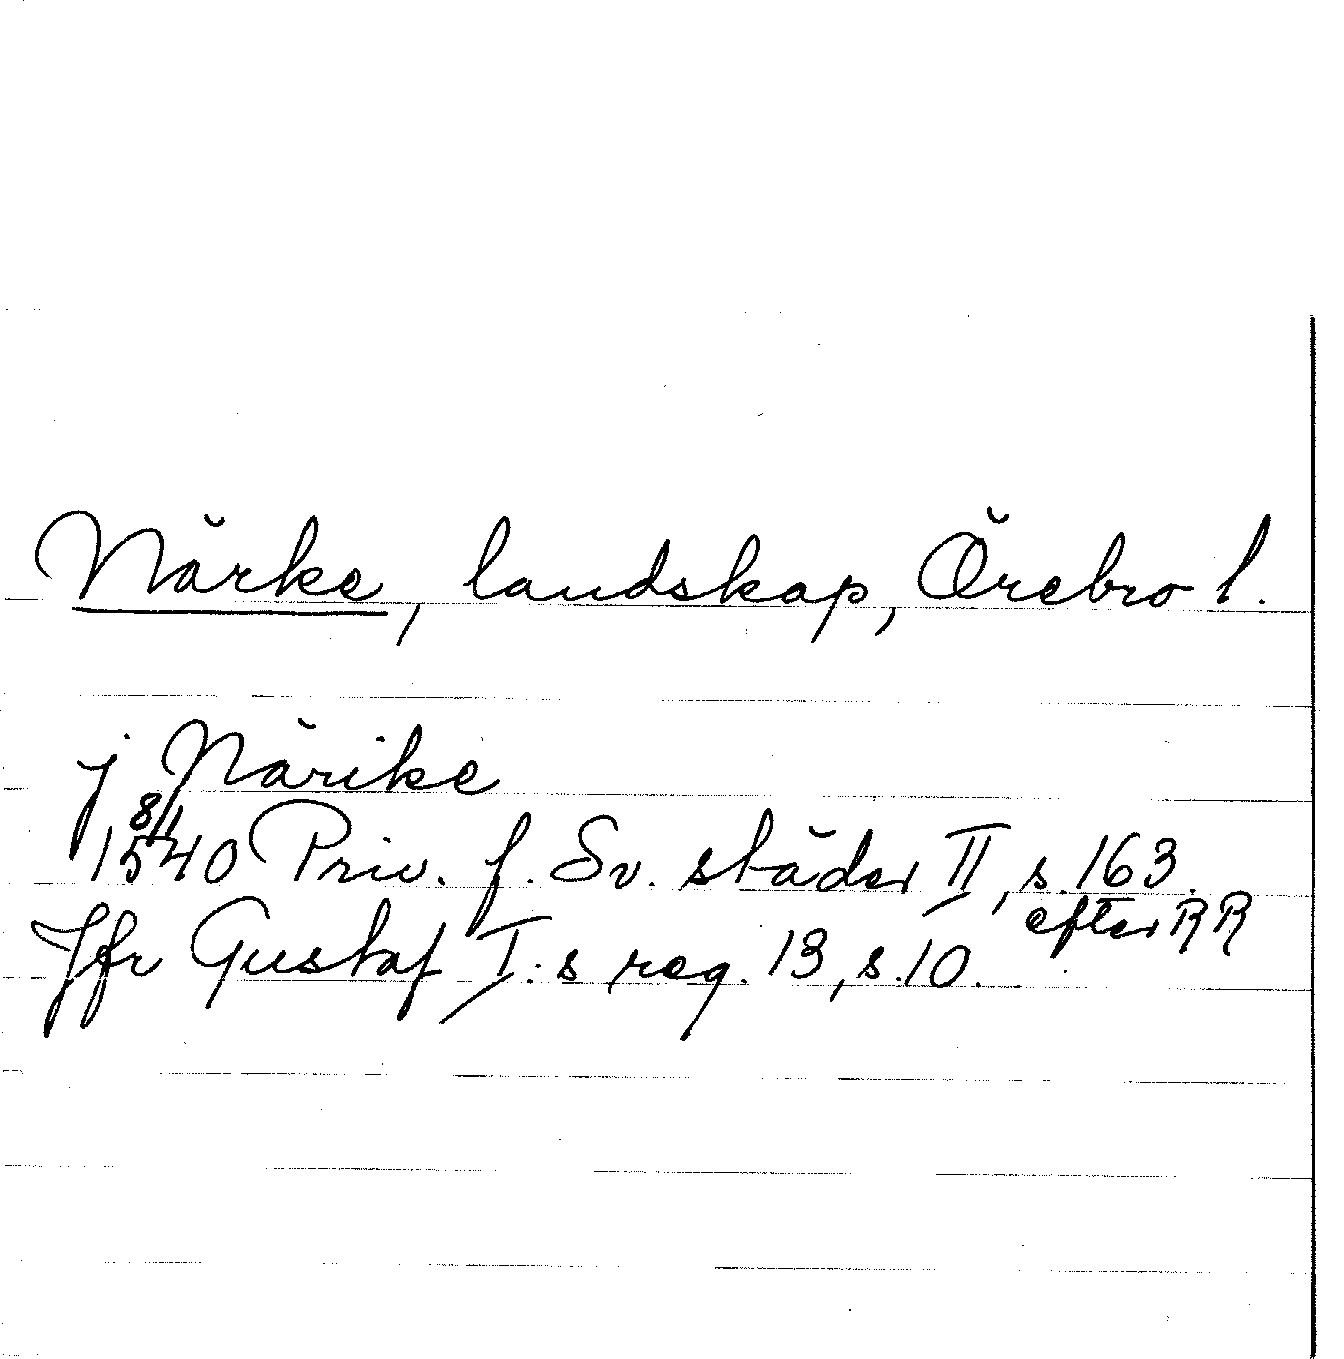 Närke, landskap, Örebro l.
j Närike
8/1
1540 Priv. f. Sv. städer II, s. 163.
efter RR
Jfr Gustaf I:s reg. 13, s. 10.